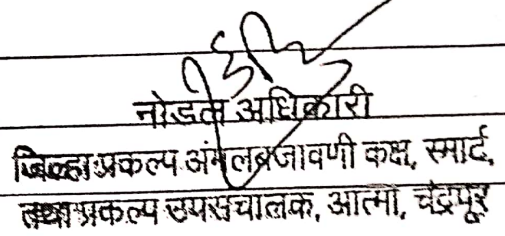 नोडल अधिकारी
जिल्हा प्रकल्प अंमलबजावणी कक्ष, स्मार्ट,
तथा प्रकल्प उपसंचालक, आत्मा, चंद्रपूर